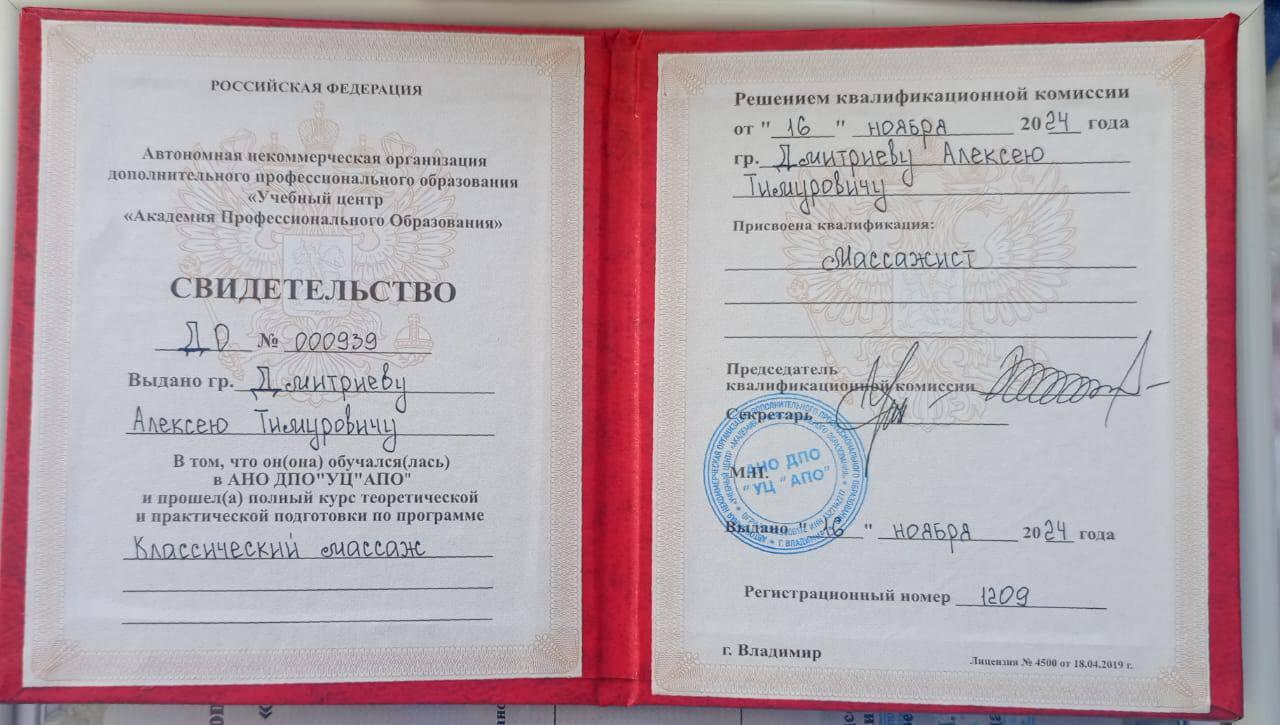 РОССИЙСКАЯ ФЕДЕРАЦИЯ
Автономная некоммерческая организация
дополнительного профессионального образования
«Учебный центр
«Академия Профессионального Образования»
СВИДЕТЕЛЬСТВО
ДО № 000939
Выдано гр. Дмитриеву
Алексею Тимуровичу
В том, что он(она) обучался(лась)
в АНО ДПО"УЦ"АПО"
и прошел(а) полный курс теоретической
и практической подготовки по программе
Классический массаж
Решением квалификационной комиссии
от "16" ноября 2024 года
гр. Дмитриеву Алексею
Тимуровичу
Присвоена квалификация:
Массажист
Председатель
квалификационной комиссии
Секретарь
М.П.
АНО ДПО
"УЦ "АПО"
Выдано "16" ноября 2024 года
Регистрационный номер 1209
г. Владимир
Лицензия № 4500 от 18.04.2019 г.